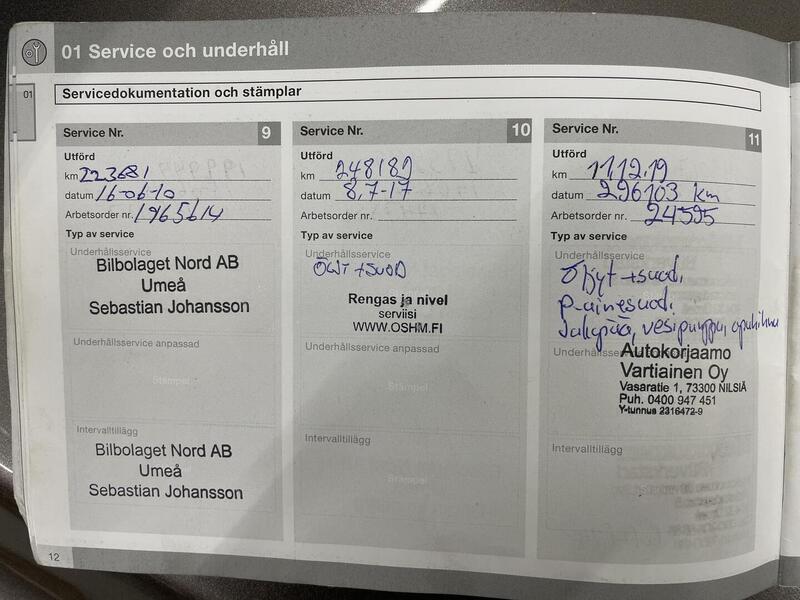 01 Service och underhåll
01
Servicedokumentation och stämplar
Service Nr. 9
Utförd
km 223681
datum 16-06-10
Arbetsorder nr. 1965614
Typ av service
Underhållsservice
Bilbolaget Nord AB
Umeå
Sebastian Johansson
Underhållsservice anpassad
Stämpel
Intervalltillägg
Bilbolaget Nord AB
Umeå
Sebastian Johansson
Service Nr. 10
Utförd
km 248189
datum 8,7-17
Arbetsorder nr.
Typ av service
Underhållsservice
ÖLJYT +SUOD
Rengas ja nivel
serviisi
WWW.OSHM.FI
Underhållsservice anpassad
Stämpel
Intervalltillägg
Stämpel
Service Nr. 11
Utförd
km 11,12.19
datum 296103 km
Arbetsorder nr. 24595
Typ av service
Underhållsservice
Öljyt +suod.
P-ainesuod.
Jakopää, vesipumppu, apuhihna
Underhållsservice
Autokorjaamo
Vartiainen Oy
Vasaratie 1, 73300 NILSIÄ
Puh. 0400 947 451
Y-tunnus 2316472-9
Intervalltillägg
12